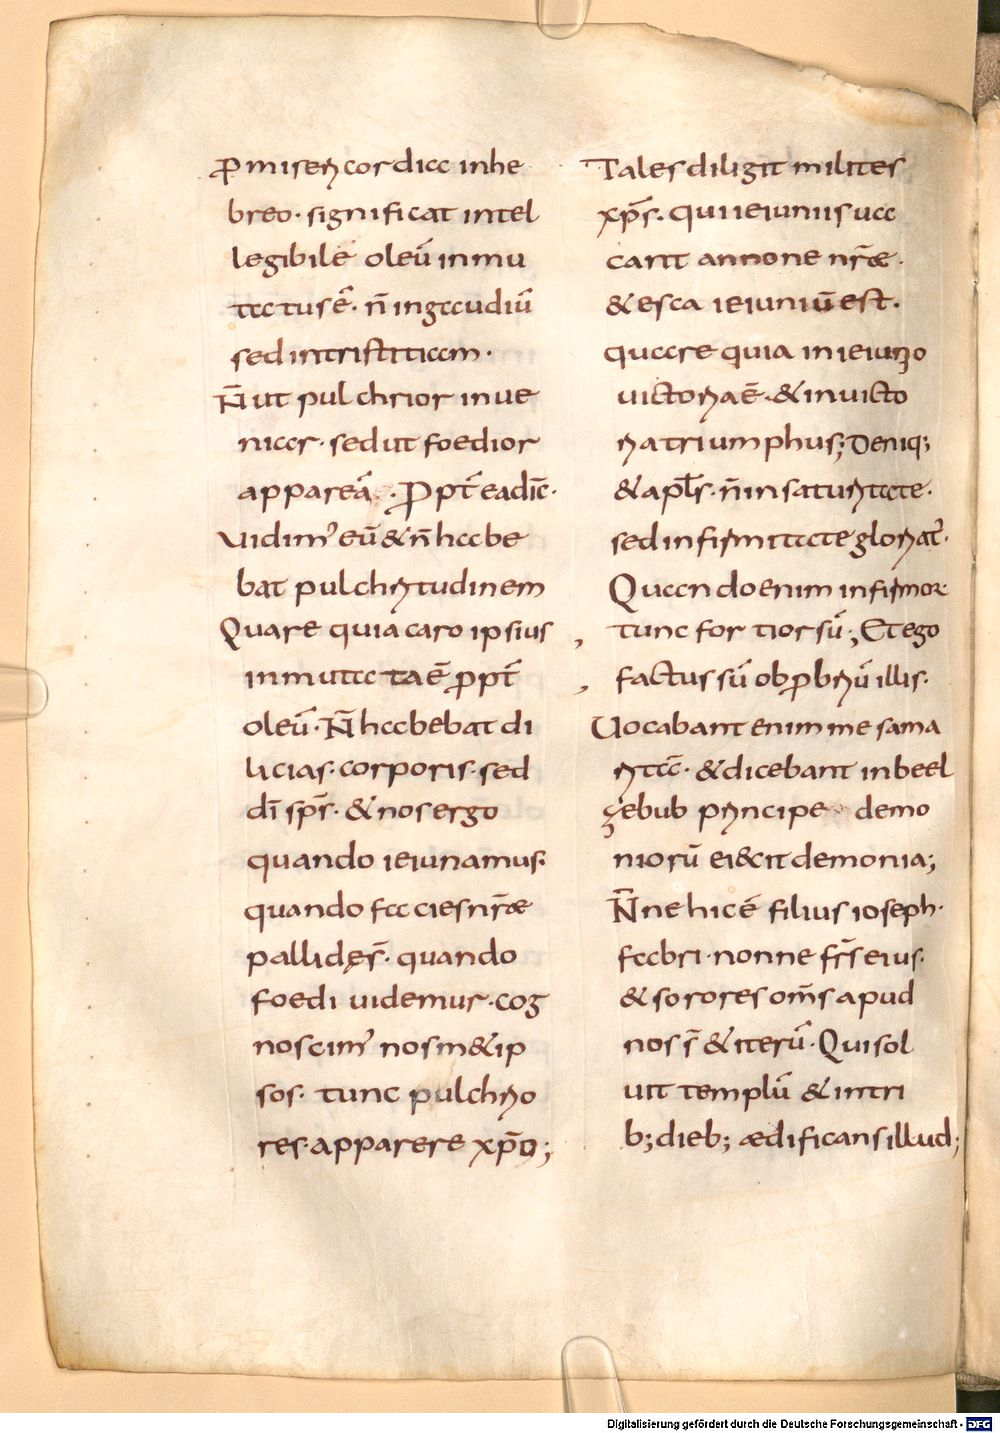 ꝓ misericordia inhe
breo · significat intel
legibile oleū inmu
tatus ē · n̄ ingaudiū
sed intristitiam ·
N̄ ut pulchrior inue
niar · sed ut foedior
appareā · Ꝓpt̄ eadic̄ ·
Uidim' eū & n̄ habe
bat pulchritudinem
Quare quia caro ipsius
inmutata ē ꝓpt̄
oleū · N̄ habebat di
licias · corporis · sed
dī sp̄s · & nos ergo
quando ieiunamus ·
quando facies nr̄ae
pallidę s̄ · quando
foedi uidemur · cog
noscim' nosm&ip
sos · tunc pulchrio
res · apparere xp̄o ;
Tales diligit milites
xp̄s · qui ieiuniis ua
cant annone nr̄ae ·
& esca ieiuniū est ·
quare quia in ieiunio
uictoria ē · & in uicto
ria triumphus ; Deniq;
& apl̄s · n̄ in saturitate ·
sed in firmitate gloriat̄ ·
Quando enim infirmor ·
tunc fortior sū ; Et ego
factus sū obꝓbriū illis ·
Uocabant enim me sama
ritā · & dicebant in beel
zebub principe demo
niorū ei&cit demonia ;
N̄ne hic ē filius ioseph ·
fabri · nonne fr̄s eius ·
& sorores om̄s apud
nos s̄ & iterū · Qui sol
uit templū & in tri
b; dieb; ædificans illud ;
Digitalisierung gefördert durch die Deutsche Forschungsgemeinschaft - DFG